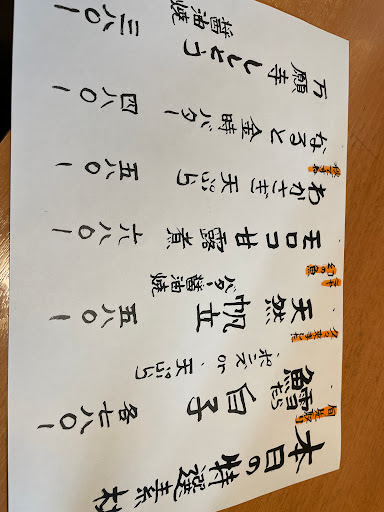 本日の特選素材
鱈 たら 白子 各七八〇ー
ポンズ or 天ぷら
天然 帆立 五八〇ー
バター醤油焼
幻の魚
モロコ甘露煮 六八〇ー
わかさぎ天ぷら 五八〇ー
なると金時バター 四八〇ー
万願寺ししとう
醤油焼 三八〇ー